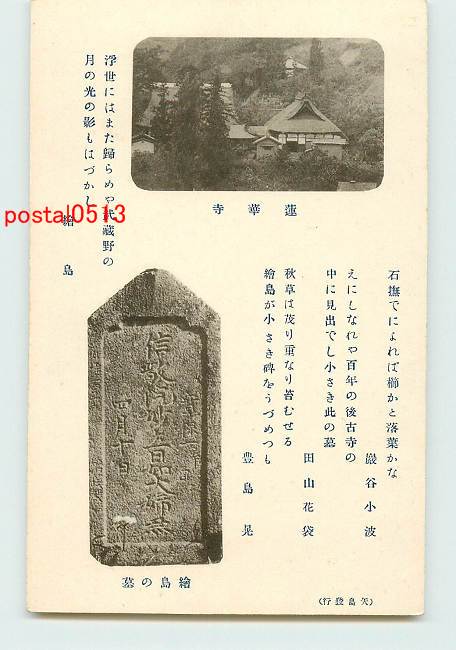 蓮華寺
浮世にはまた歸らめや武藏野の
月の光の影もはづかし
繪島
postal0513
石撫でによれば櫛かと落葉かな
巖谷小波
えにしなれや百年の後古寺の
中に見出でし小さき此の墓
田山花袋
秋草は茂り重なり苔むせる
繪島が小さき碑をうづめつも
豊島晃
信敬院妙立日如大姉
四月十日
繪島の墓
(矢島發行)